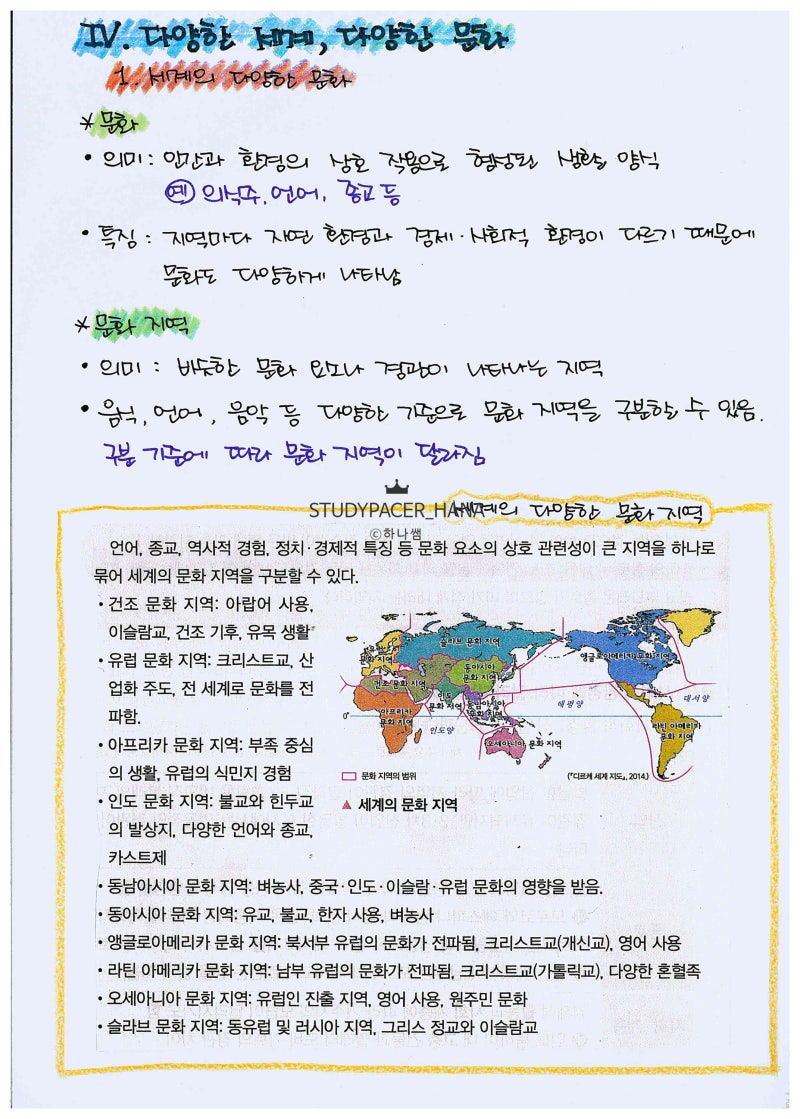 IV. 다양한 세계, 다양한 문화
1. 세계의 다양한 문화
* 문화
• 의미 : 인간과 환경의 상호 작용으로 형성된 생활 양식
예 의식주, 언어, 종교 등
• 특징 : 지역마다 자연 환경과 경제·사회적 환경이 다르기 때문에
문화도 다양하게 나타남
* 문화 지역
• 의미 : 비슷한 문화 요소나 경관이 나타나는 지역
• 음식, 언어, 음악 등 다양한 기준으로 문화 지역을 구분할 수 있음.
구분 기준에 따라 문화 지역이 달라짐
STUDYPACER_HANA
©하나쌤
세계의 다양한 문화 지역
언어, 종교, 역사적 경험, 정치·경제적 특징 등 문화 요소의 상호 관련성이 큰 지역을 하나로
묶어 세계의 문화 지역을 구분할 수 있다.
• 건조 문화 지역: 아랍어 사용,
이슬람교, 건조 기후, 유목 생활
• 유럽 문화 지역: 크리스트교, 산
업화 주도, 전 세계로 문화를 전
파함.
• 아프리카 문화 지역: 부족 중심
의 생활, 유럽의 식민지 경험
• 인도 문화 지역: 불교와 힌두교
의 발상지, 다양한 언어와 종교,
카스트제
슬라브 문화 지역
유럽
문화 지역
동아시아
문화 지역
건조 문화 지역
인도
문화 지역
동남아시아
문화 지역
아프리카
문화 지역
오세아니아 문화 지역
앵글로아메리카 문화 지역
라틴 아메리카
문화 지역
태평양
대서양
인도양
0°
문화 지역의 범위
(『디르케 세계 지도』, 2014.)
▲ 세계의 문화 지역
• 동남아시아 문화 지역: 벼농사, 중국·인도·이슬람·유럽 문화의 영향을 받음.
• 동아시아 문화 지역: 유교, 불교, 한자 사용, 벼농사
• 앵글로아메리카 문화 지역: 북서부 유럽의 문화가 전파됨, 크리스트교(개신교), 영어 사용
• 라틴 아메리카 문화 지역: 남부 유럽의 문화가 전파됨, 크리스트교(가톨릭교), 다양한 혼혈족
• 오세아니아 문화 지역: 유럽인 진출 지역, 영어 사용, 원주민 문화
• 슬라브 문화 지역: 동유럽 및 러시아 지역, 그리스 정교와 이슬람교